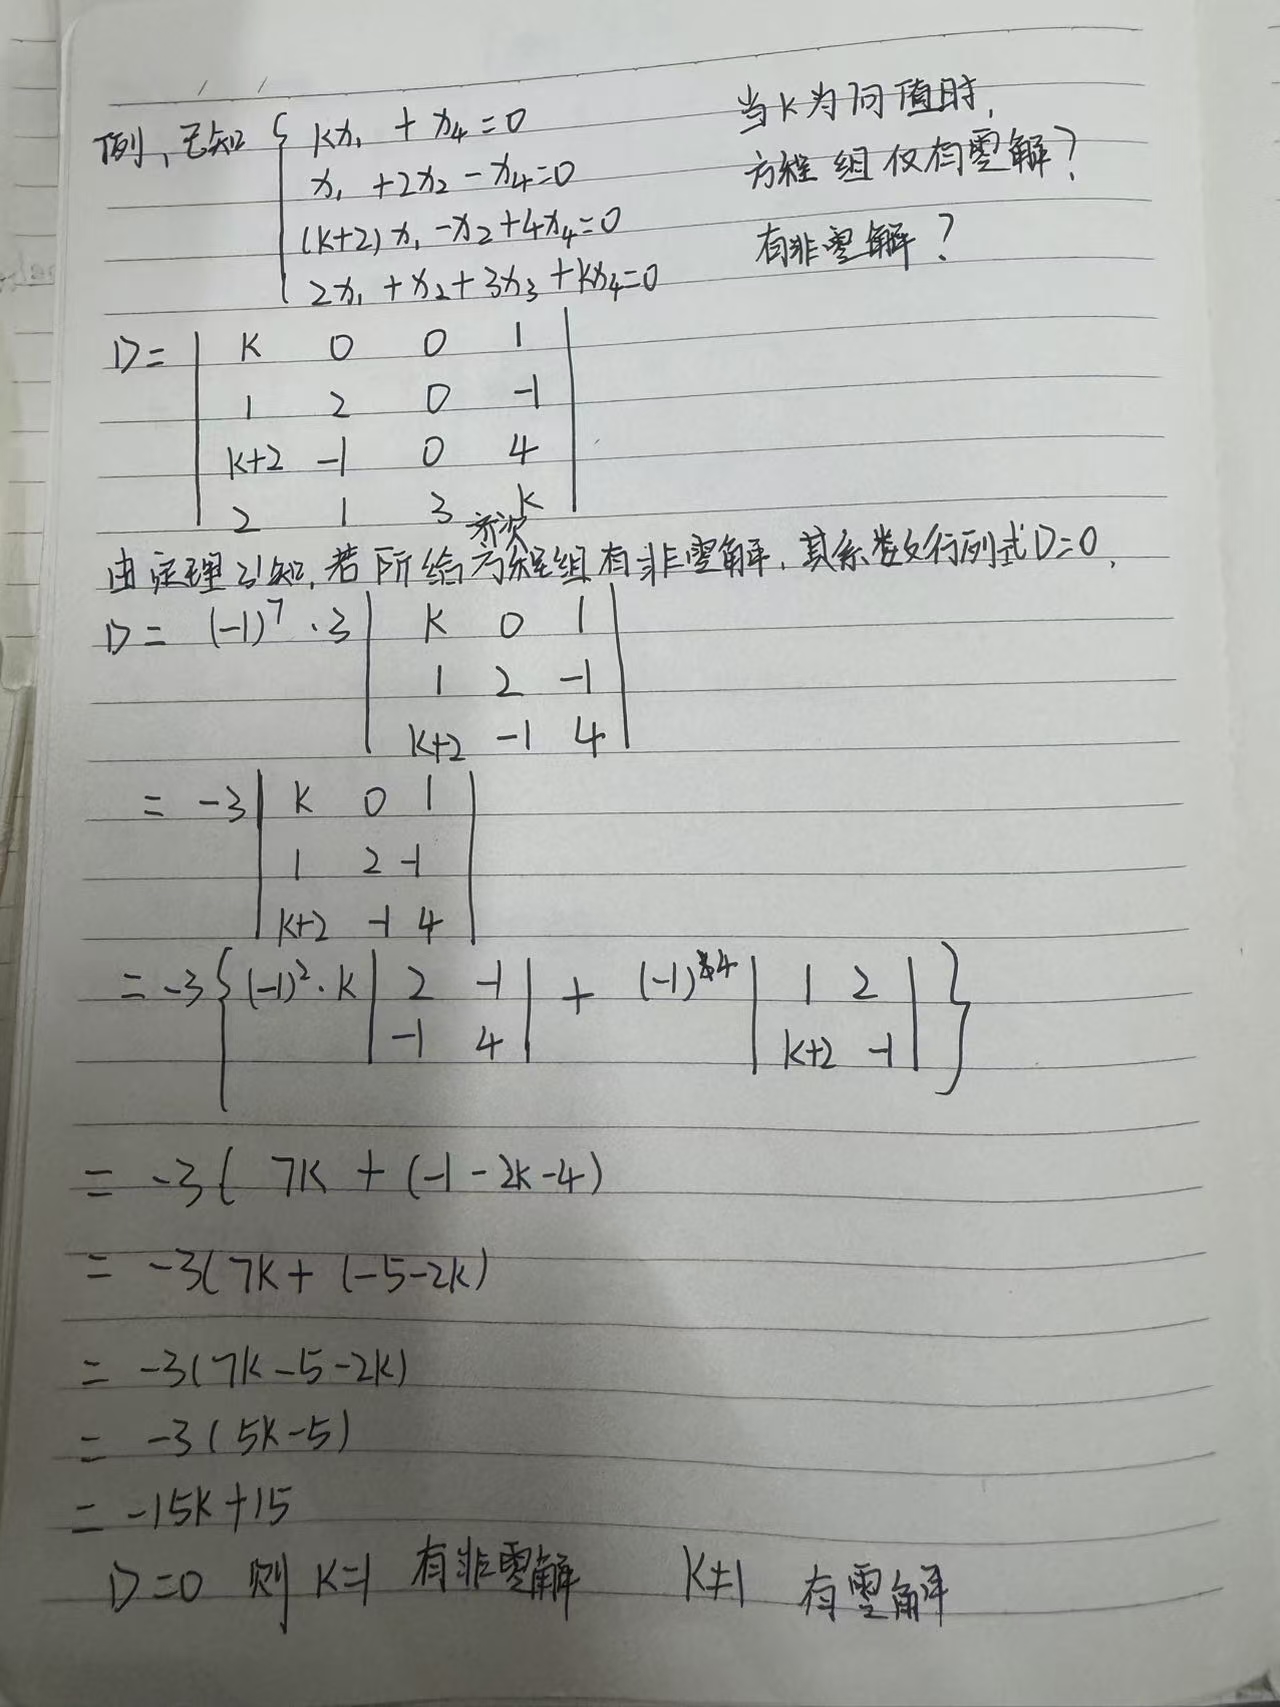 例，已知 { kx₁ + x₄=0
x₁ +2x₂ - x₄=0
(k+2)x₁ -x₂+4x₄=0
2x₁ +x₂+3x₃ +kx₄=0
当k为何值时，
方程组仅有零解？
有非零解？
D= | k 0 0 1 |
| 1 2 0 -1 |
| k+2 -1 0 4 |
| 2 1 3 k |
齐次
由定理2知，若所给方程组有非零解，其系数行列式D=0，
D= (-1)⁷ ·3 | k 0 1 |
| 1 2 -1 |
| k+2 -1 4 |
= -3 | k 0 1 |
| 1 2 -1 |
| k+2 -1 4 |
= -3 { (-1)²·k | 2 -1 | + (-1)⁴ | 1 2 | }
| -1 4 | | k+2 -1 |
= -3( 7k + (-1-2k-4)
= -3(7k+ (-5-2k)
= -3(7k-5-2k)
= -3(5k-5)
= -15k+15
D=0 则 k=1 有非零解 k≠1 有零解